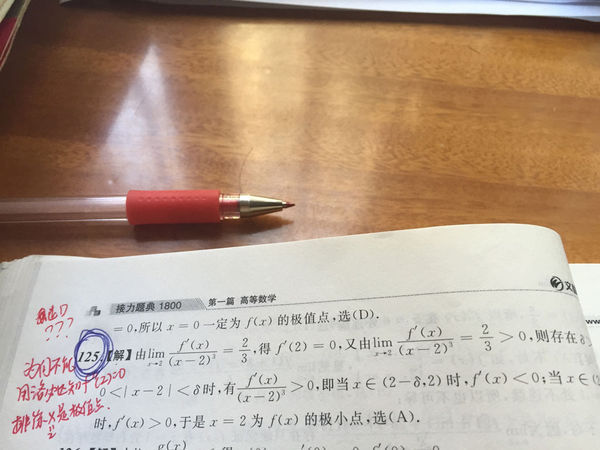 接力题典 1800 第一篇 高等数学
= 0,所以 x = 0 一定为 f(x) 的极值点,选(D).
???
125.【解】由 lim x→2 f′(x)/(x−2)³ = 2/3 ,得 f′(2) = 0,又由 lim x→2 f′(x)/(x−2)³ = 2/3 > 0,则存在 δ
0 < | x − 2 | < δ 时,有 f′(x)/(x−2)³ > 0,即当 x ∈ (2−δ,2) 时,f′(x) < 0;当 x ∈ (2
时,f′(x) > 0,于是 x = 2 为 f(x) 的极小点,选(A).
为何不能